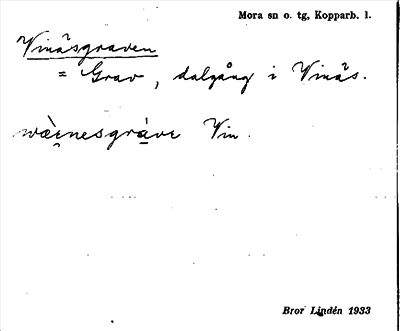 Mora sn o. tg, Kopparb. l.
Vinäsgraven
= Grav, dalgång i Vinäs.
wæ̀rnesgràvę Vin.
Bror Lindén 1933